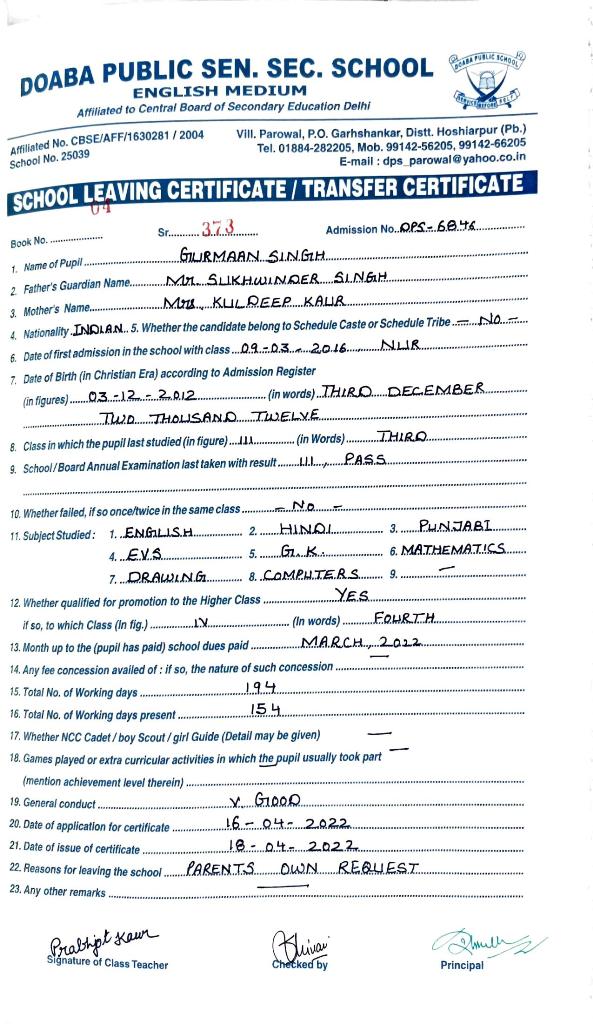 DOABA PUBLIC SEN. SEC. SCHOOL
ENGLISH MEDIUM
Affiliated to Central Board of Secondary Education Delhi
DOABA PUBLIC SCHOOL
Affiliated No. CBSE/AFF/1630281 / 2004
School No. 25039
Vill. Parowal, P.O. Garhshankar, Distt. Hoshiarpur (Pb.)
Tel. 01884-282205, Mob. 99142-56205, 99142-66205
E-mail : dps_parowal@yahoo.co.in
SCHOOL LEAVING CERTIFICATE / TRANSFER CERTIFICATE
Book No. 04 Sr. 373 Admission No. DPS-6846
1. Name of Pupil GURMAAN SINGH
2. Father's Guardian Name Mr. SUKHWINDER SINGH
3. Mother's Name Mrs. KULDEEP KAUR
4. Nationality INDIAN 5. Whether the candidate belong to Schedule Caste or Schedule Tribe - No -
6. Date of first admission in the school with class 09-03-2016, NUR
7. Date of Birth (in Christian Era) according to Admission Register
(in figures) 03-12-2012 (in words) THIRD DECEMBER
TWO THOUSAND TWELVE
8. Class in which the pupil last studied (in figure) III (in Words) THIRD
9. School / Board Annual Examination last taken with result III, PASS
10. Whether failed, if so once/twice in the same class - No -
11. Subject Studied : 1. ENGLISH 2. HINDI 3. PUNJABI
4. EVS 5. G.K. 6. MATHEMATICS
7. DRAWING 8. COMPUTERS 9. —
12. Whether qualified for promotion to the Higher Class YES
if so, to which Class (In fig.) IV (In words) FOURTH
13. Month up to the (pupil has paid) school dues paid MARCH, 2022
14. Any fee concession availed of : if so, the nature of such concession —
15. Total No. of Working days 194
16. Total No. of Working days present 154
17. Whether NCC Cadet / boy Scout / girl Guide (Detail may be given) —
18. Games played or extra curricular activities in which the pupil usually took part —
(mention achievement level therein)
19. General conduct V. GOOD
20. Date of application for certificate 16-04-2022
21. Date of issue of certificate 18-04-2022
22. Reasons for leaving the school PARENTS OWN REQUEST
23. Any other remarks —
Prabhjot Kaur
Signature of Class Teacher Checked by Principal